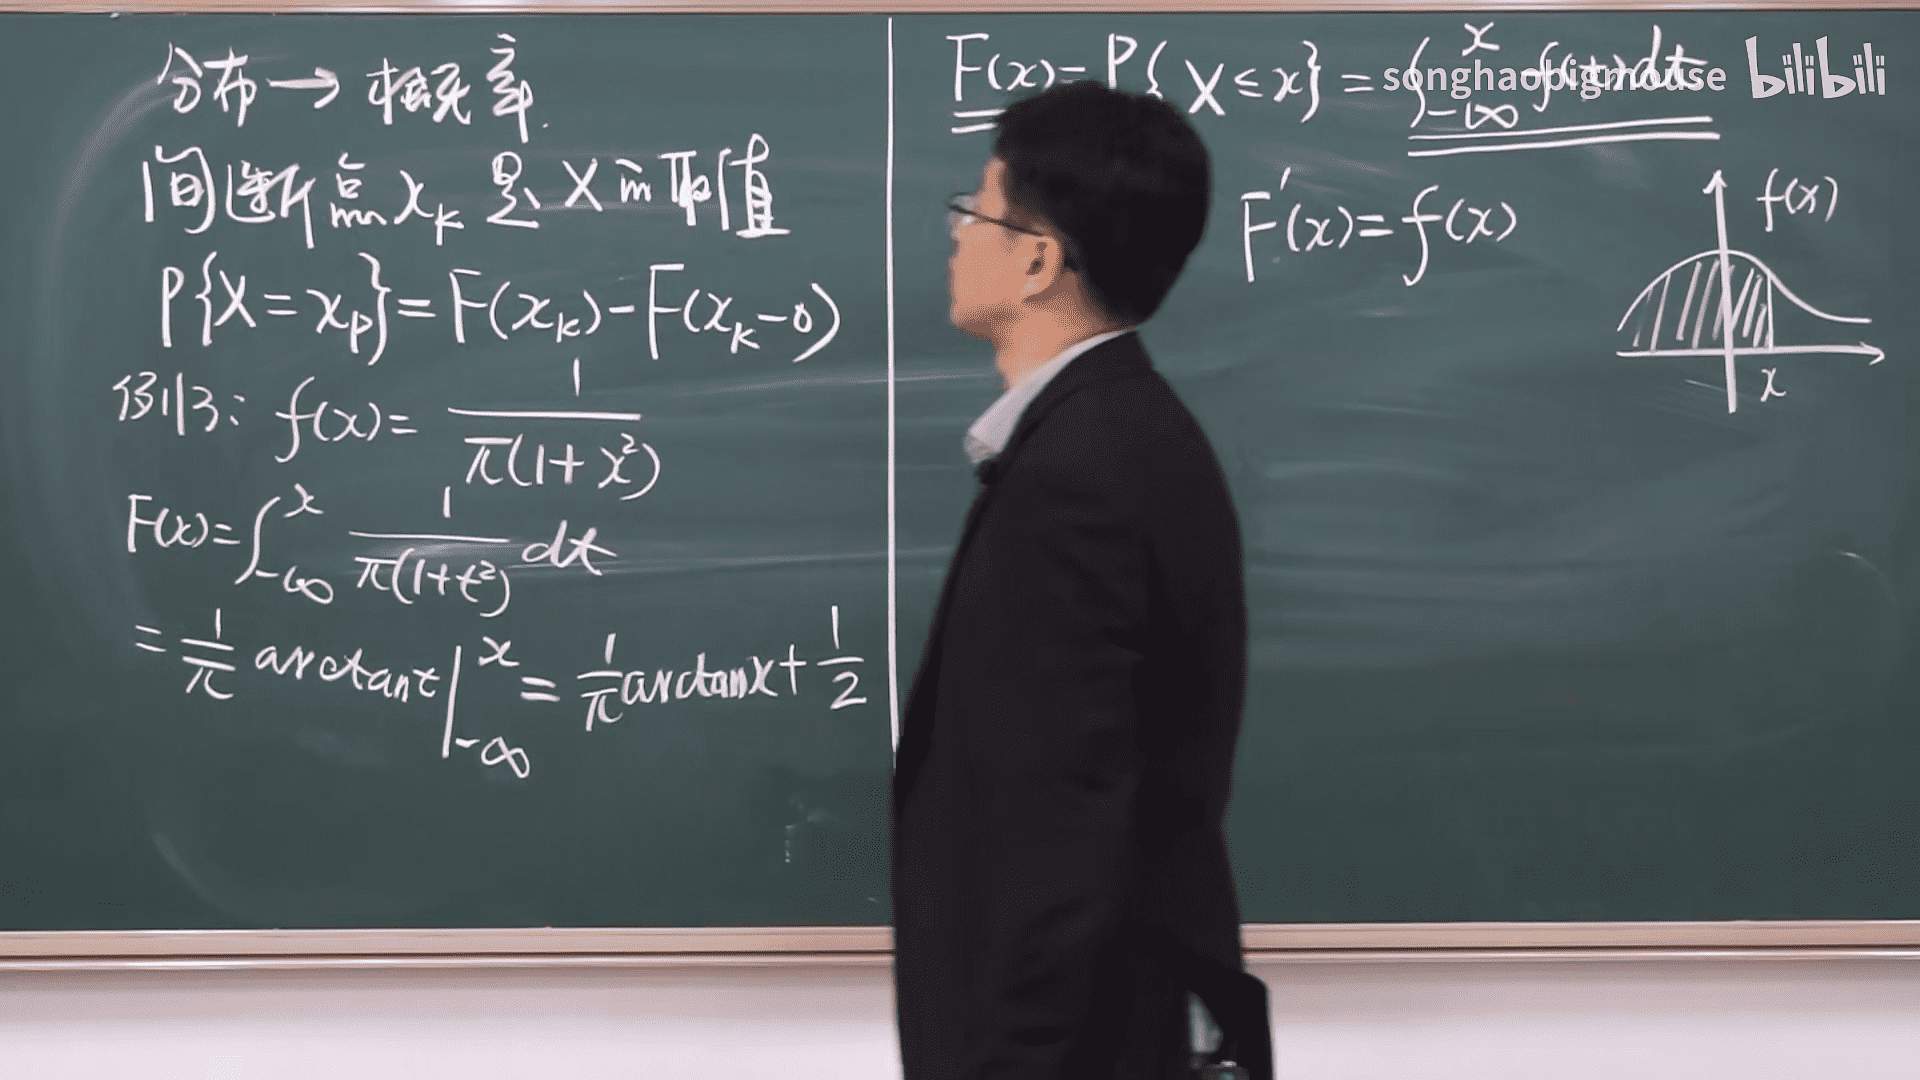 分布→概率.
间断点xₖ是X的取值
P{X=xₚ}=F(xₖ)-F(xₖ-0)
例3: f(x)= 1/π(1+x²)
F(x)=∫_{-∞}^{x} 1/π(1+t²) dt
=1/π arctant|_{-∞}^{x} = 1/π arctanx+1/2
F(x)=P{X≤x}=∫_{-∞}^{x} f(t)dt
songhaobigmouse bilibili
F'(x)=f(x)
f(x)
x